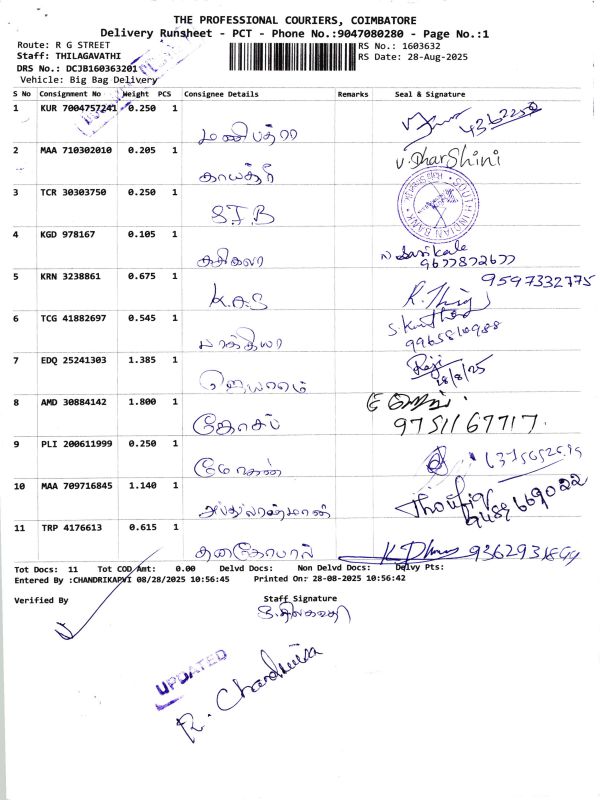 THE PROFESSIONAL COURIERS, COIMBATORE
Delivery Runsheet - PCT - Phone No.:9047080280 - Page No.:1
Route: R G STREET
RS No.: 1603632
Staff: THILAGAVATHI
RS Date: 28-Aug-2025
DRS No.: DCJB160363201
Vehicle: Big Bag Delivery
S No Consignment No Weight PCS Consignee Details Remarks Seal & Signature
1 KUR 7004757241 0.250 1 மணிபத்ரா
2 MAA 710302010 0.205 1 காயத்ரி V. Dharshini
3 TCR 30303750 0.250 1 SIB SOUTH INDIAN BANK
4 KGD 978167 0.105 1 சசிகலா N Sasikala
9677872677
5 KRN 3238861 0.675 1 K.A.S 9597332775
6 TCG 41882697 0.545 1 பாக்யா
9965810988
7 EDQ 25241303 1.385 1 ஜெயராம் Raji
28/8/25
8 AMD 30884142 1.800 1 ஜோசப்
9751167717.
9 PLI 200611999 0.250 1 மோகன்
10 MAA 709716845 1.140 1 அப்துல்ரஹ்மான்
9489669022
11 TRP 4176613 0.615 1 தனகோபால்
Tot Docs: 11 Tot COD Amt: 0.00 Delvd Docs: Non Delvd Docs: Delvy Pts:
Entered By :CHANDRIKAPVI 08/28/2025 10:56:45 Printed On: 28-08-2025 10:56:42
Verified By Staff Signature
UPDATED
R. Chandrika